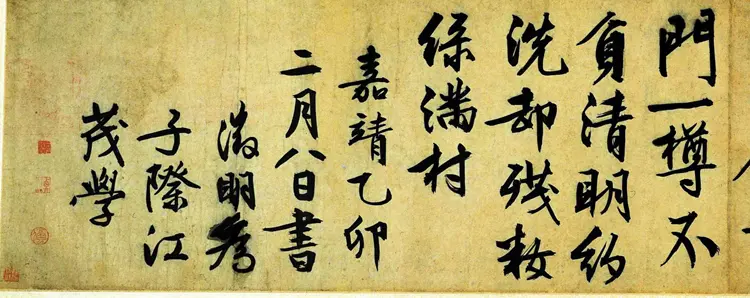 門一樽不
負清明約
洗却殘粧
綠滿村
嘉靖乙卯
二月八日書
徵明為
子際江
茂學